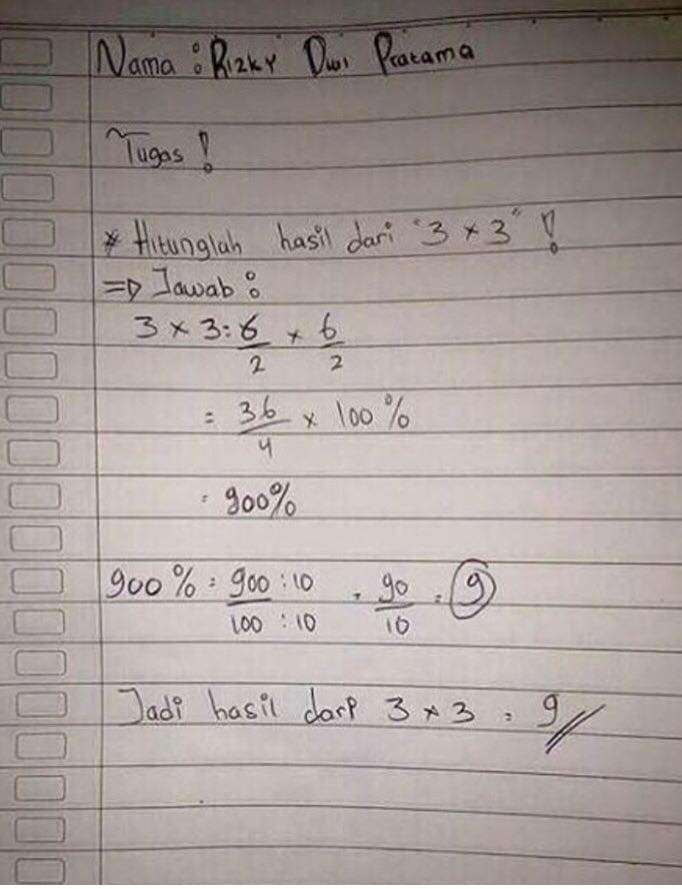 Nama : Rizky Dwi Pratama
Tugas !
* Hitunglah hasil dari "3 × 3" !
=> Jawab :
3 × 3 : 6/2 × 6/2
= 36/4 × 100%
= 900%
900% = 900 : 10 / 100 : 10 = 90/10 = 9
Jadi hasil dari 3 × 3 = 9 //